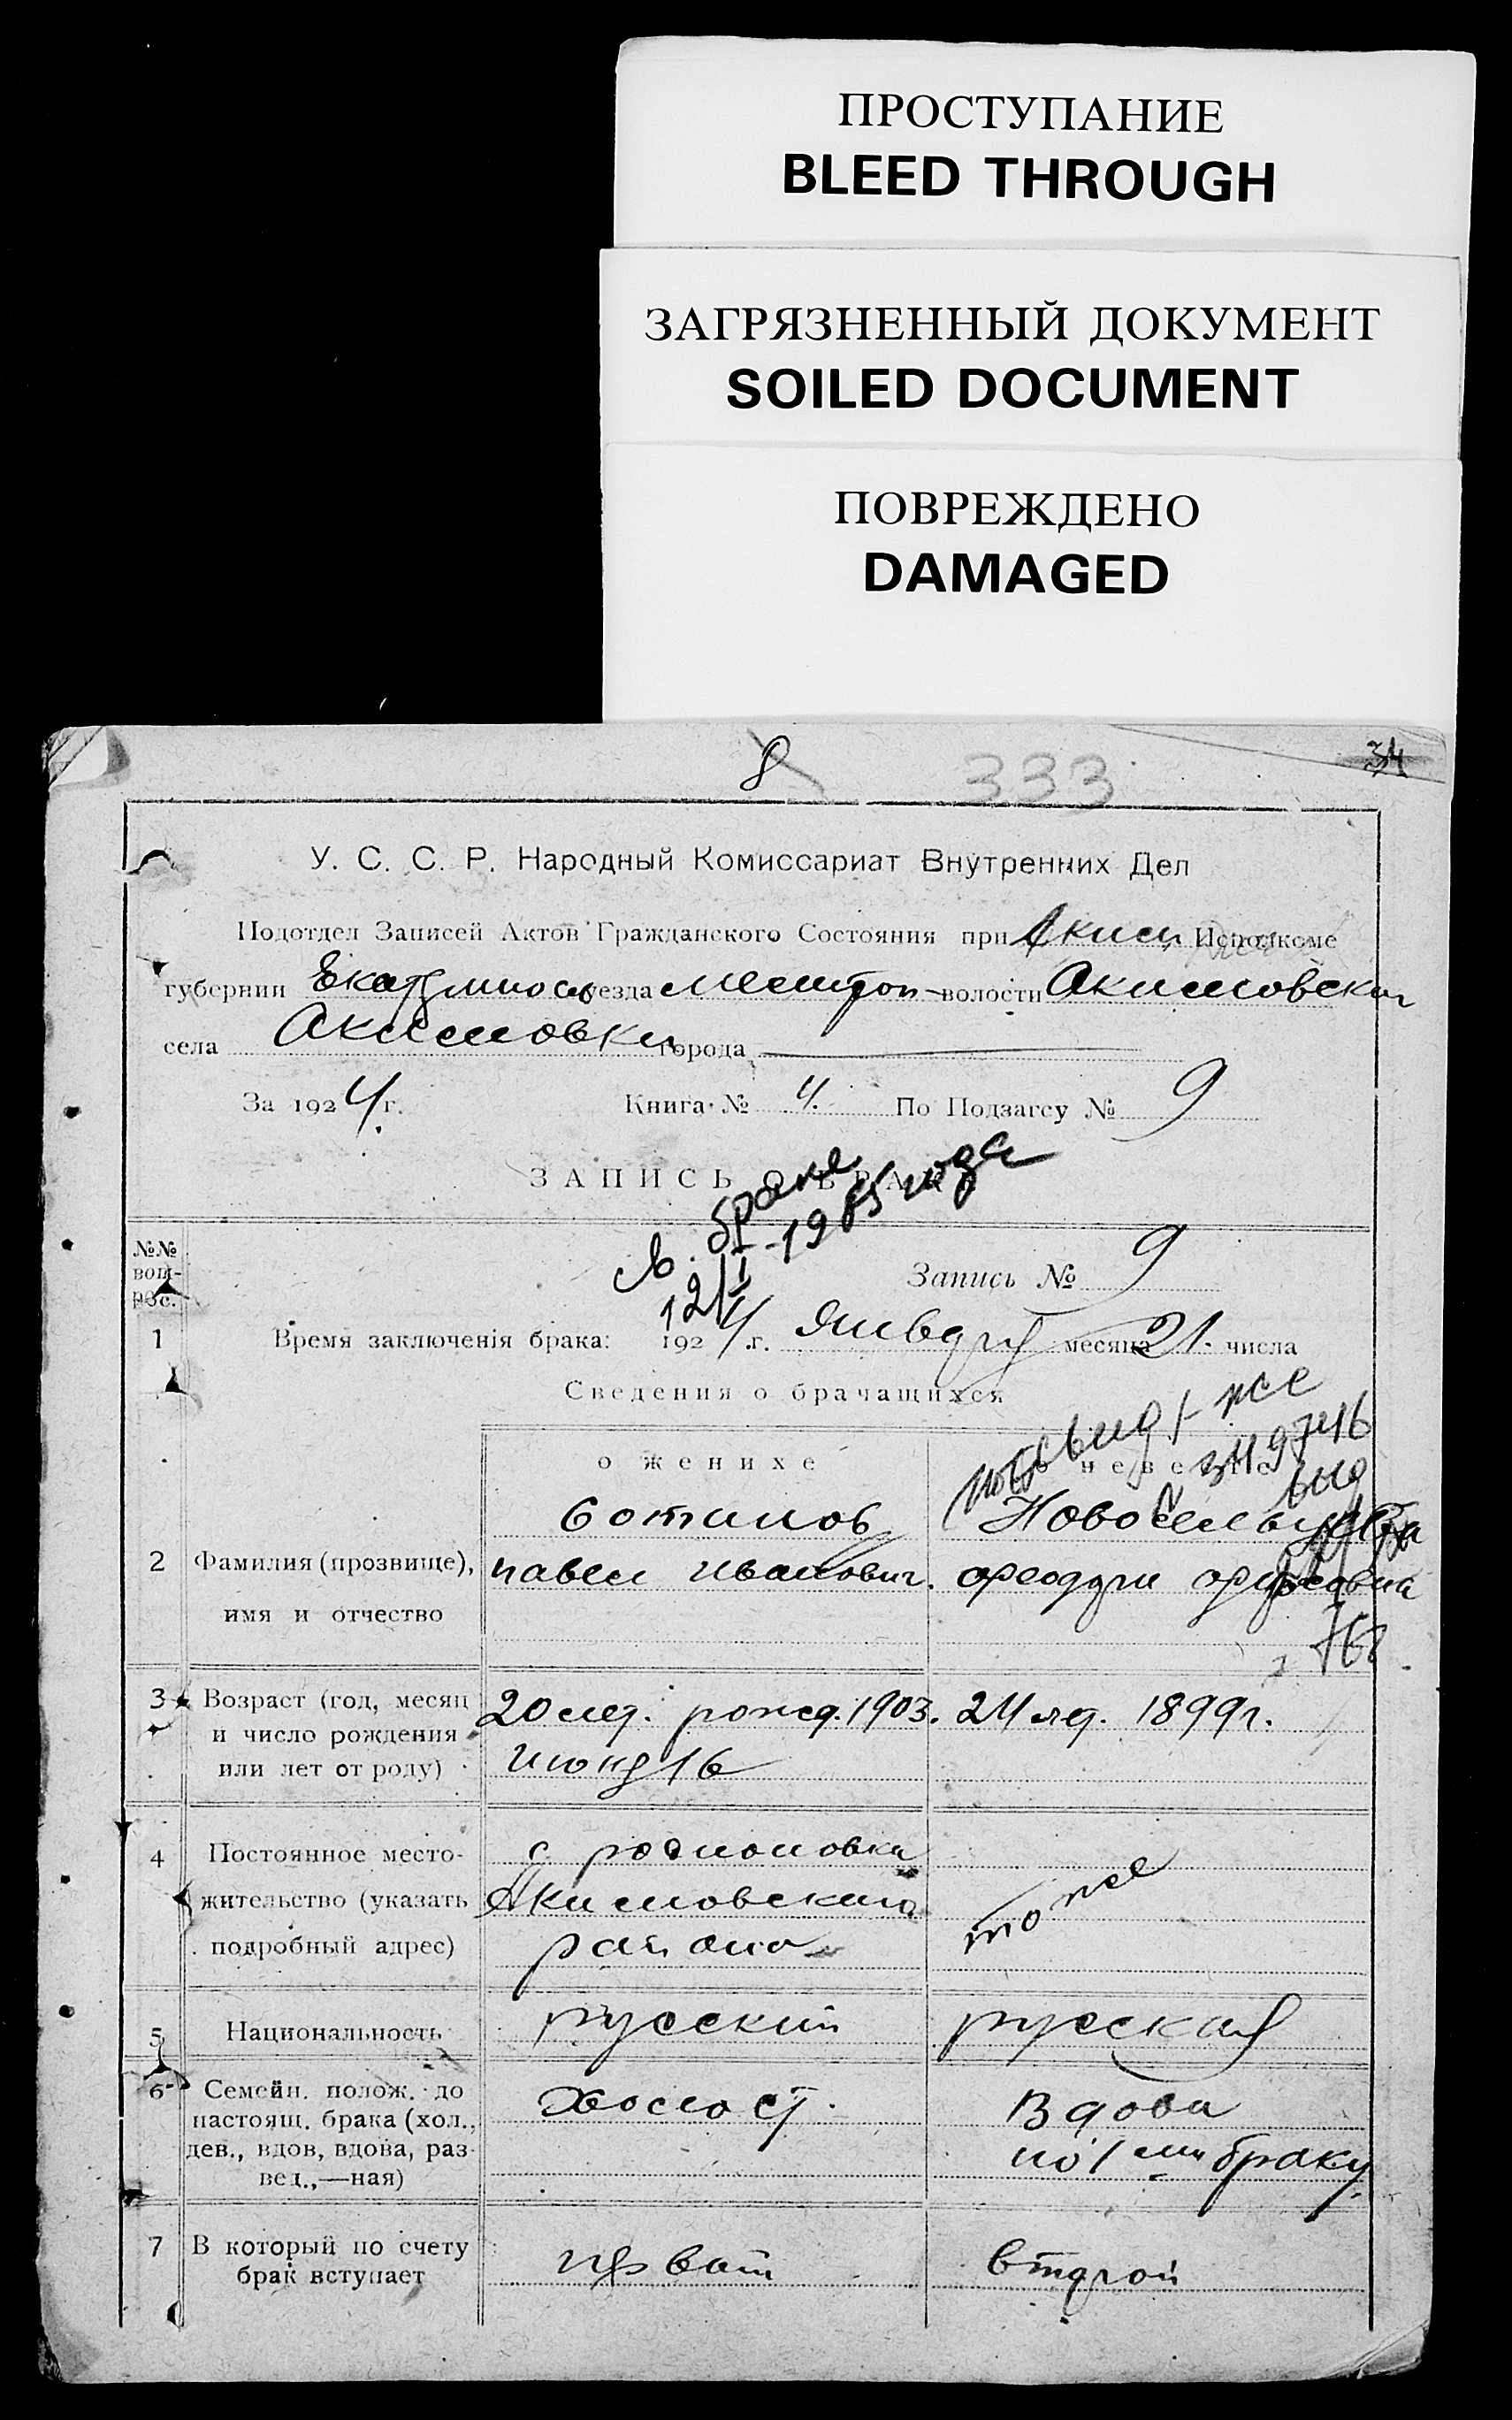 ПРОСТУПАНИЕ
BLEED THROUGH
ЗАГРЯЗНЕННЫЙ ДОКУМЕНТ
SOILED DOCUMENT
ПОВРЕЖДЕНО
DAMAGED
8 333 34
У. С. С. Р. Народный Комиссариат Внутренних Дел
Подотдел Записей Актов Гражданского Состояния при Аким Исполкоме
губернии Екатеринос уезда Мелитоп- волости Акимовская
села Акимовки города
За 1924 г. Книга № 4. По Подзагсу № 9
ЗАПИСЬ О БРА
св. браке
12/I-1985 года
№№ вопрос.
Запись № 9
1 Время заключенія брака: 1924 г. Января месяца 21. числа
Сведения о брачащихся
о женихе о невесте
2 Фамилия (прозвище), имя и отчество
Сотилов
павел иванович.
Новосельцева
3 Возраст (год, месяц и число рождения или лет от роду)
20 лед. рожд. 1903.
июня 16
24 лд. 1899г.
4 Постоянное местожительство (указать подробный адрес)
с. родионовка
Акимовского
района
то же
5 Национальность
русский
русская
6 Семейн. полож. до настоящ. брака (хол., дев., вдов, вдова, развед.,—ная)
Холост.
Вдова
по 1 му браку.
7 В который по счету брак вступает
первый
второй